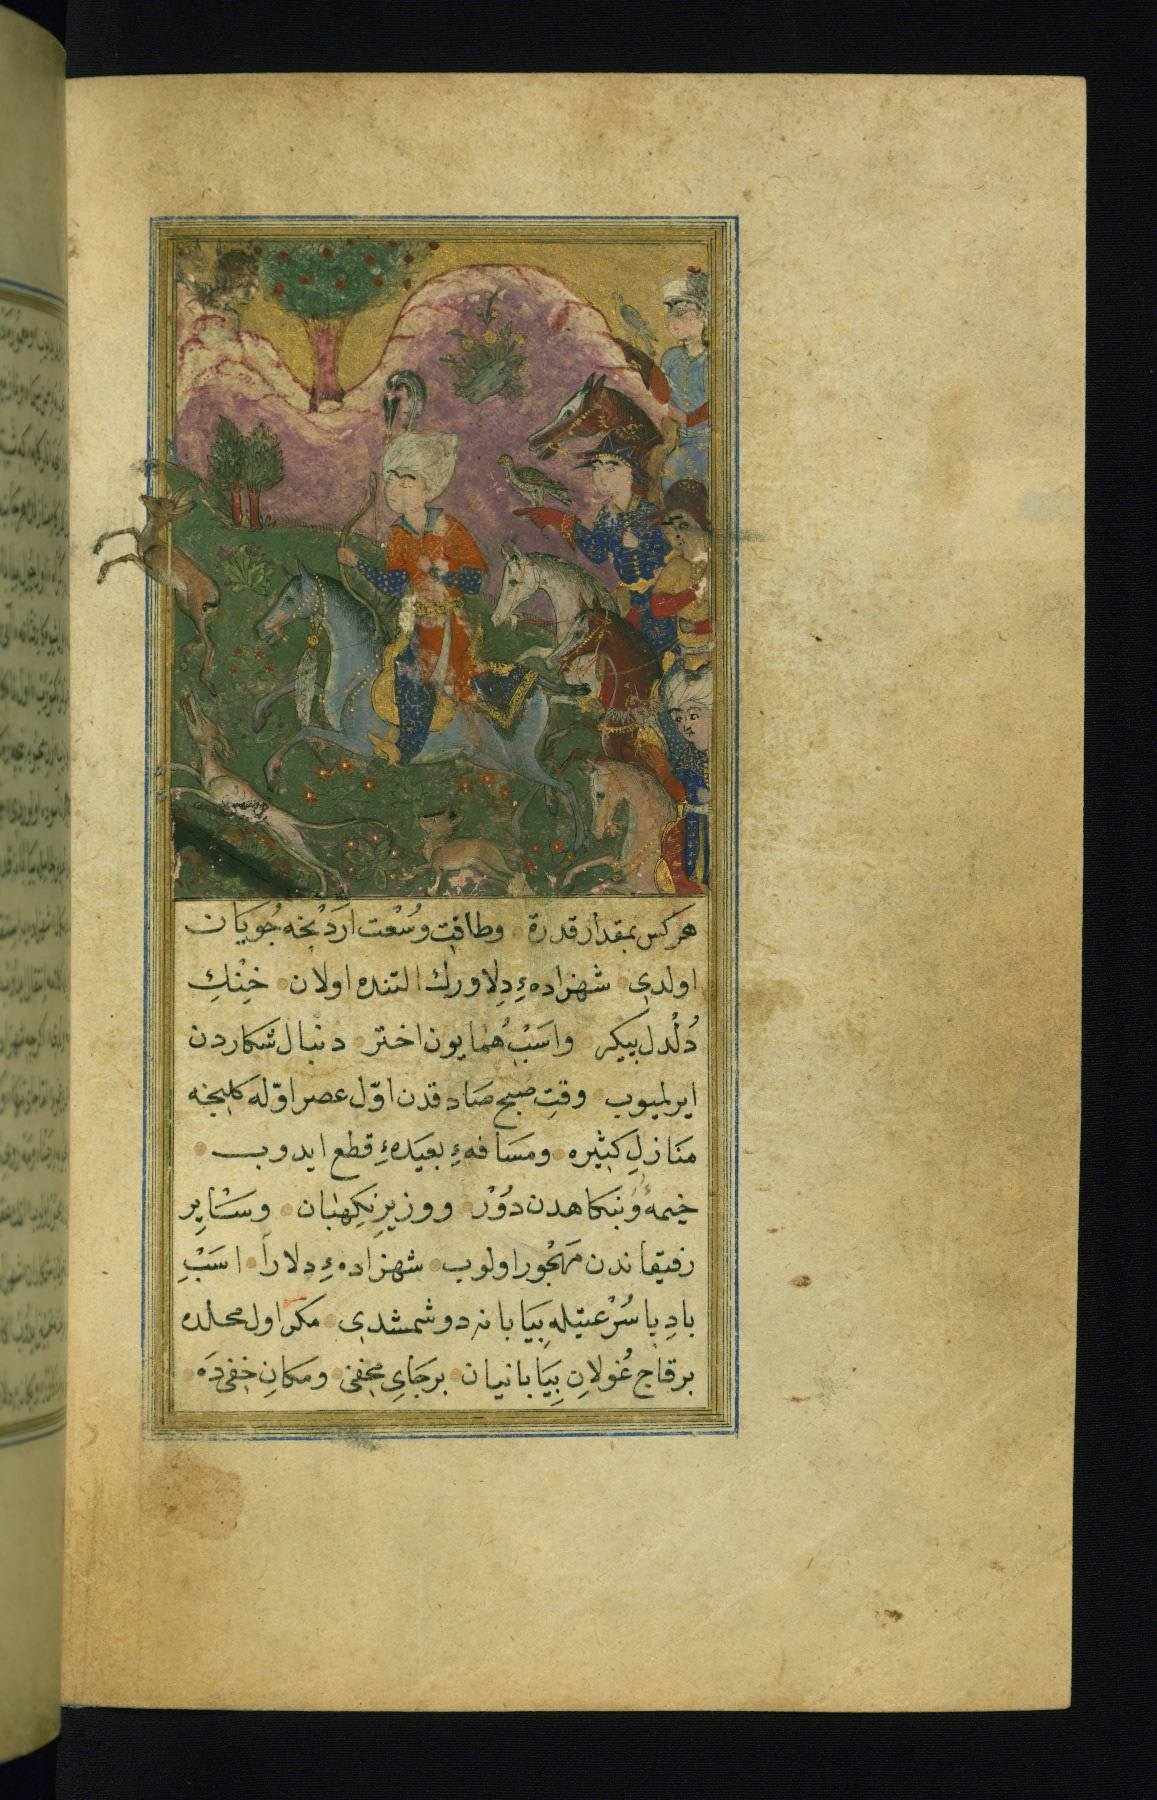 هركس بمقدار قدرة وطاقت وسُعْت اردنجه جُويان
اولدى شهزادهءِ دِلاورك التنده اولان خِنْكِ
دُلْدل پيكر واسَبْ هُمايون اختر دنبال شكاردن
ايرلميوب وقتِ صبح صادقدن اوّل عصر اوّله كلنجه
مَنازلِ كثيره ومسَافهءِ بعيَدهءِ قطع ايدوب
خيمه وُبنكاهدن دُوْر ووزيرِ نكهبان وسَايِر
رفيقاندن مَهْجور اولوب شهزادهءِ دلارا اسَبْ
بادِپا سُرْعتيله بِيَابانه دوشمشدى مكر اول محلده
برقاج غُولانِ بِيَابانيان برجَاىِ مخفى ومكانِ خفى‌دَه